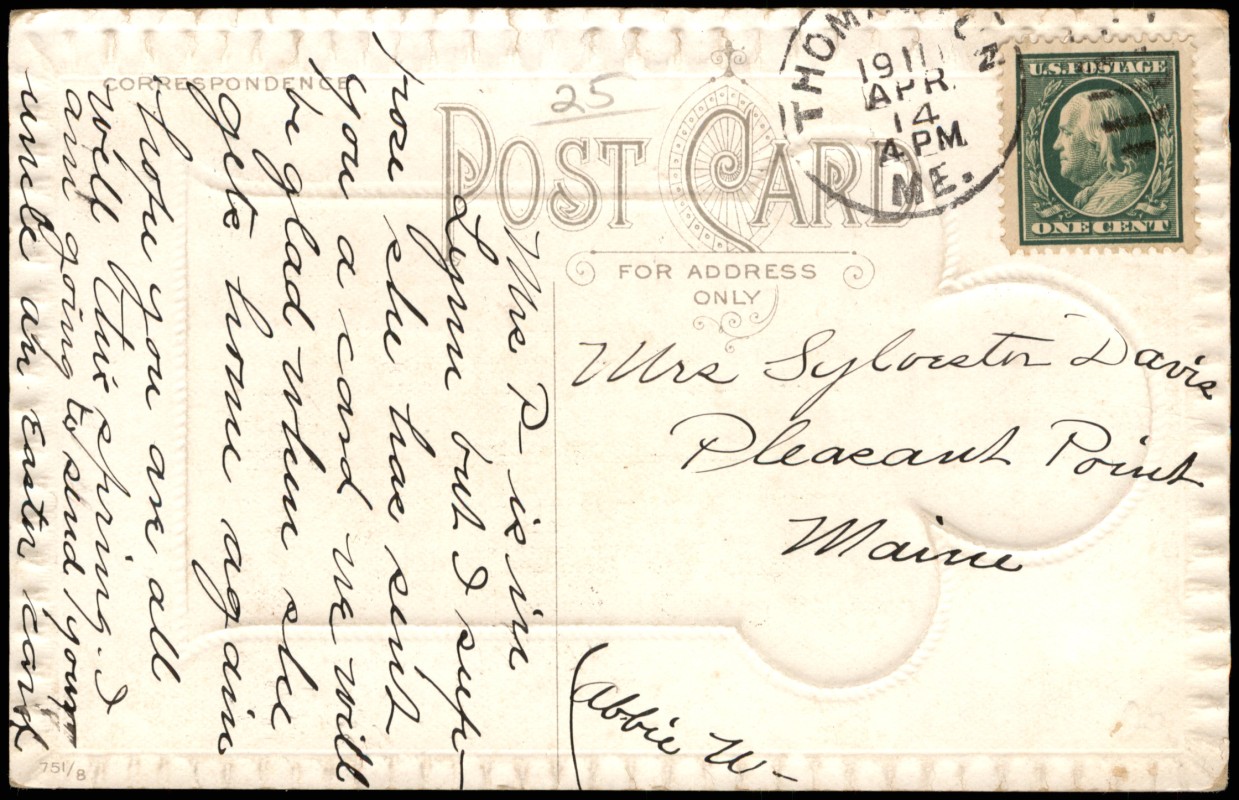 CORRESPONDENCE
25
POST CARD
FOR ADDRESS
ONLY
1911
APR
14
4 PM
ME.
U.S. POSTAGE
ONE CENT
Mrs P- is in
Lynn but I sup-
pose she has sent
you a card we will
be glad when she
gets home again
hope you are all
well this spring. I
am going to send your
uncle an Easter card
Mrs Sylvester Davis
Pleasant Point
Maine
(Abbie W-
751/8